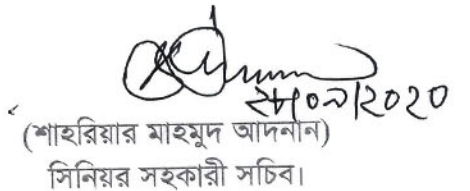 ২৮/০৯/2020
(শাহরিয়ার মাহমুদ আদনান)
সিনিয়র সহকারী সচিব।